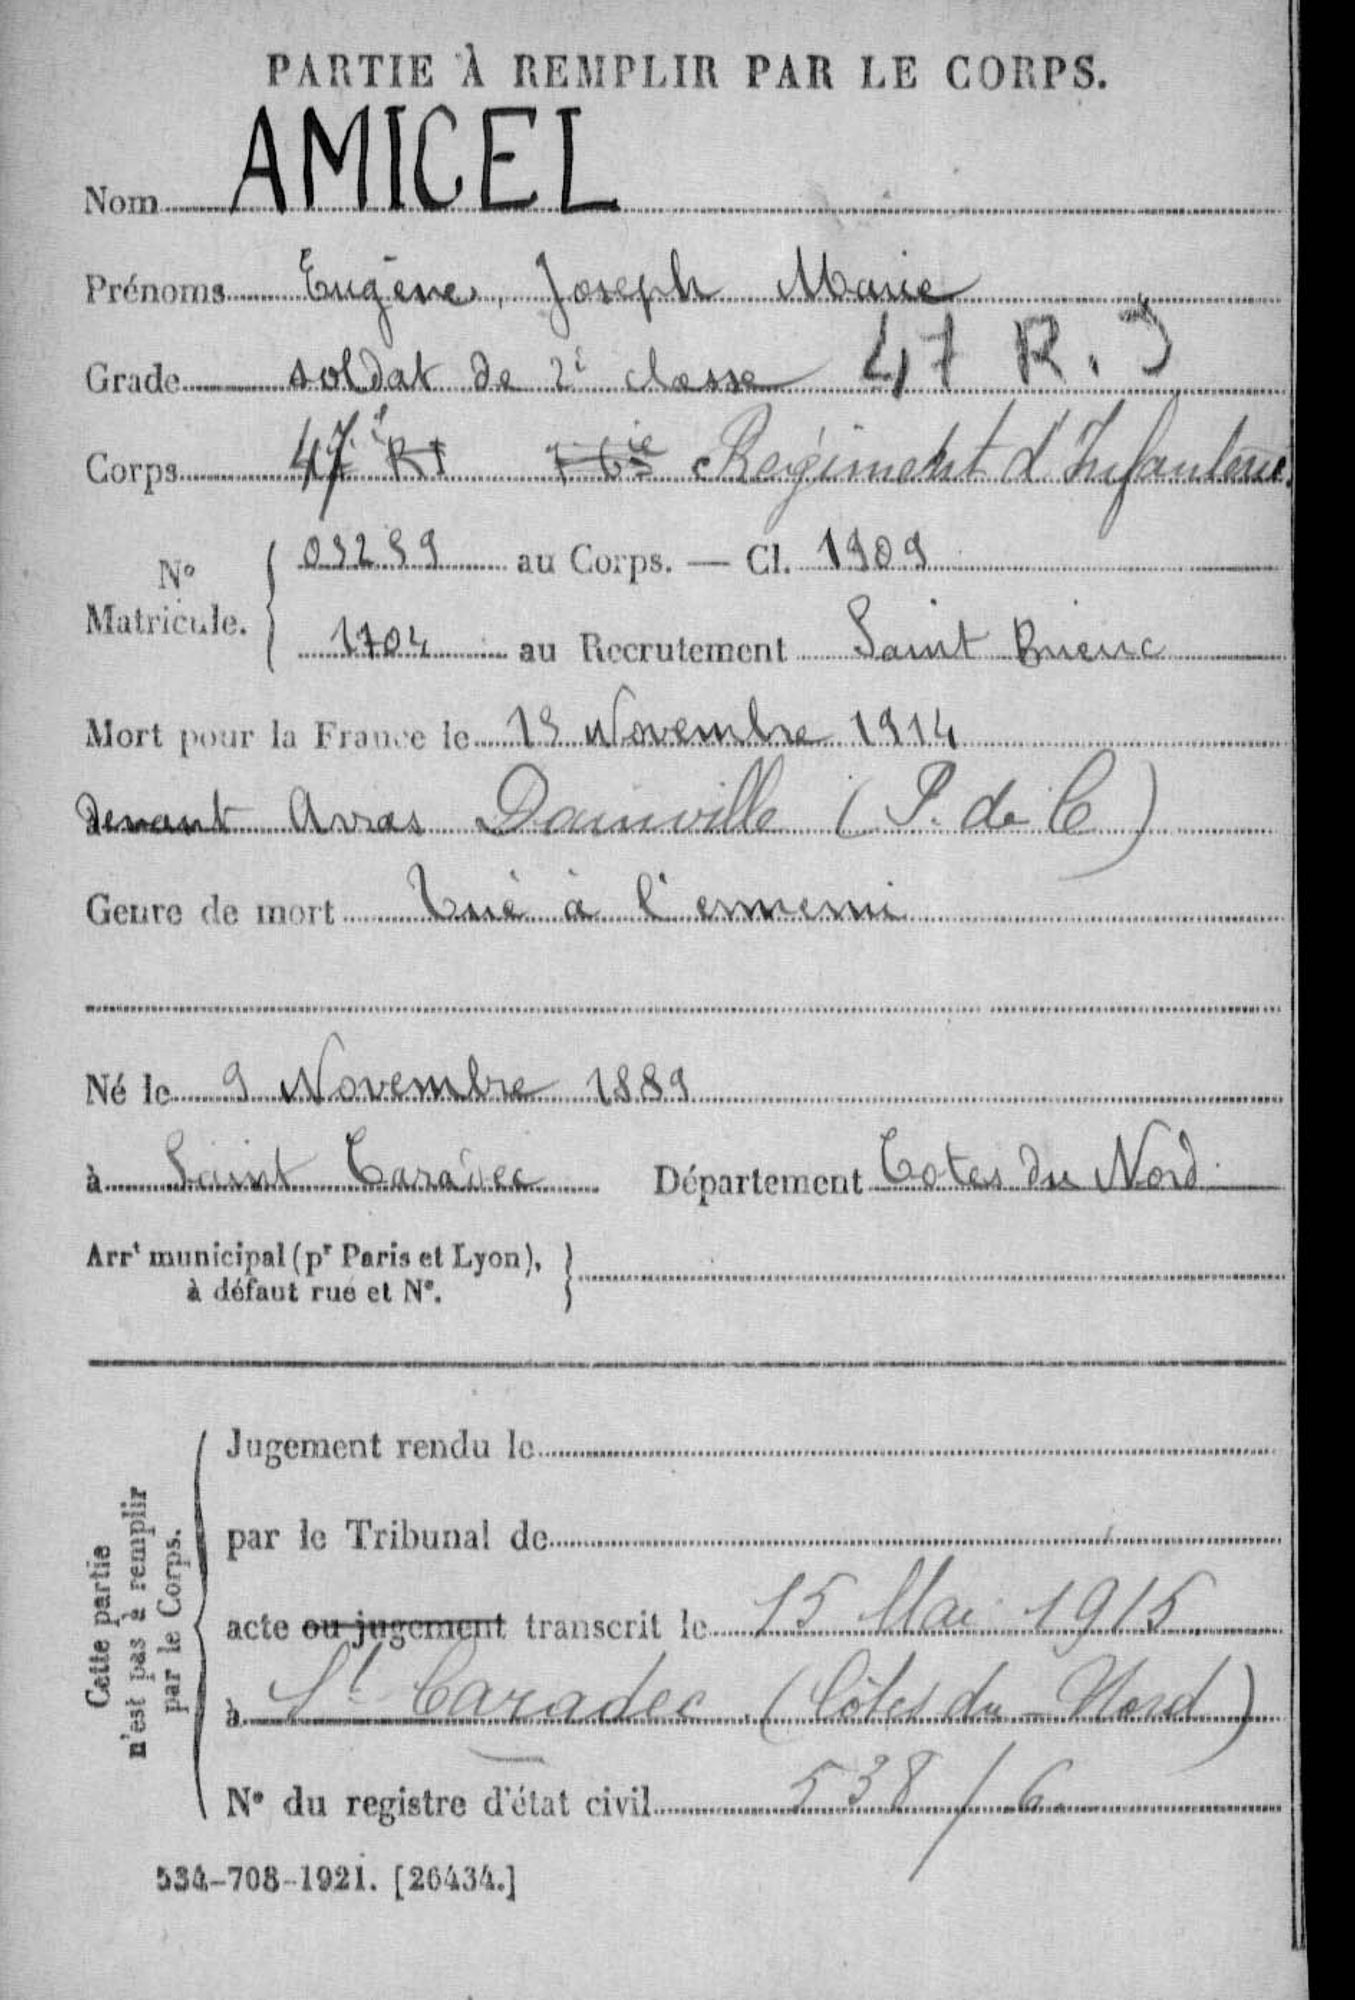 PARTIE À REMPLIR PAR LE CORPS.
Nom AMICEL
Prénoms Eugène, Joseph Marie
Grade soldat de 2è classe 47 R. I
Corps 47è RI 7 Cie Régiment d'Infanterie.
N° Matricule. 03289 au Corps. — Cl. 1909
1704 au Recrutement Saint Brieuc
Mort pour la France le 19 Novembre 1914
devant Arras Dainville (P. de C)
Genre de mort Tué à l'ennemi
Né le 9 Novembre 1889
à Saint Caradec Département Cotes du Nord
Arrt municipal (pr Paris et Lyon),
à défaut rue et N°.
Cette partie
n'est pas à remplir
par le Corps.
Jugement rendu le
par le Tribunal de
acte ou jugement transcrit le 15 Mai 1915
à St Caradec (Côtes du-Nord)
N° du registre d'état civil 538/6
534-708-1921. [26434.]